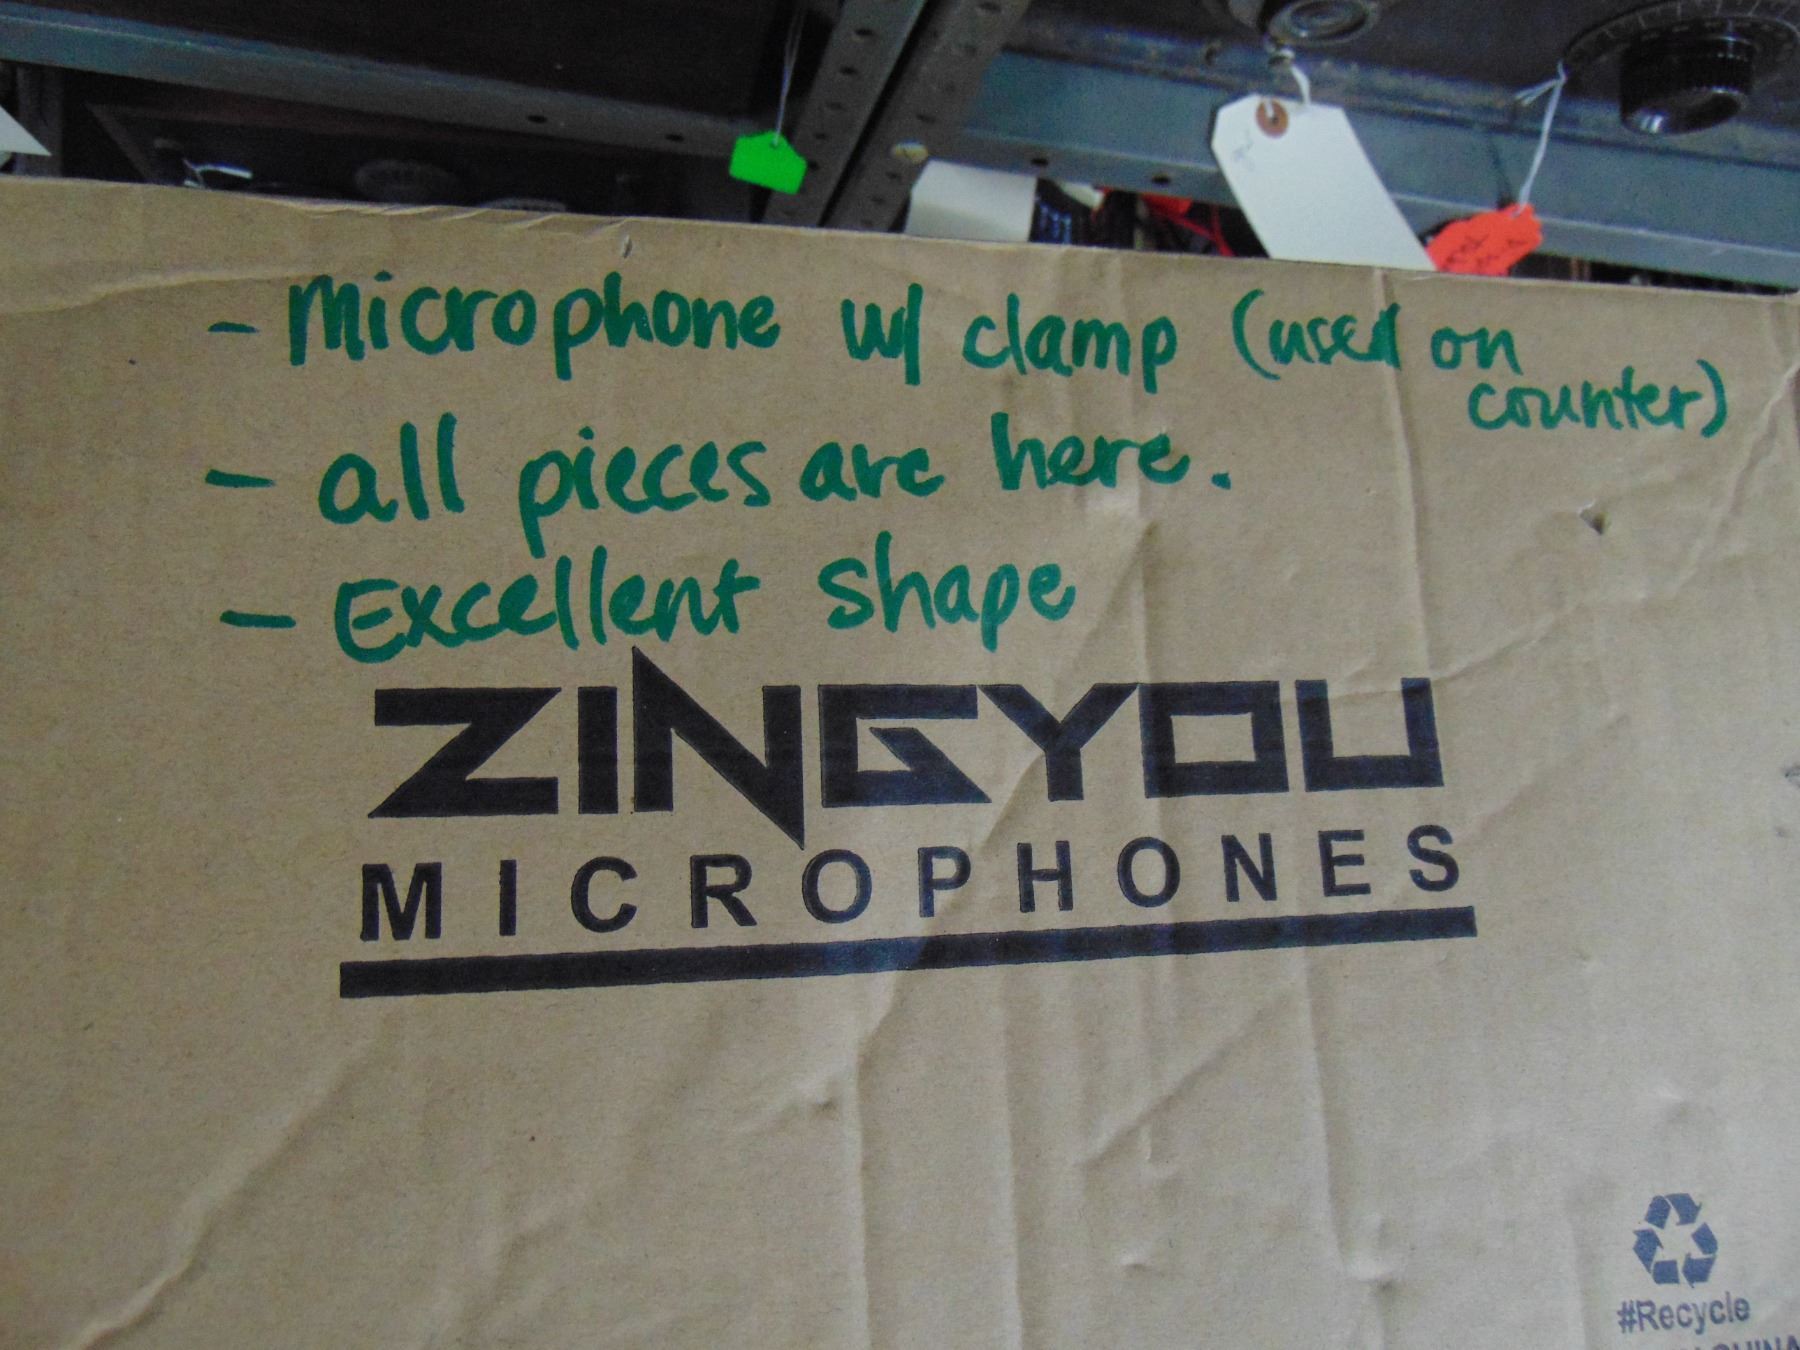 - Microphone w/ clamp (used on
counter)
- all pieces are here.
- Excellent shape
ZINGYOU
MICROPHONES
#Recycle
CHINA